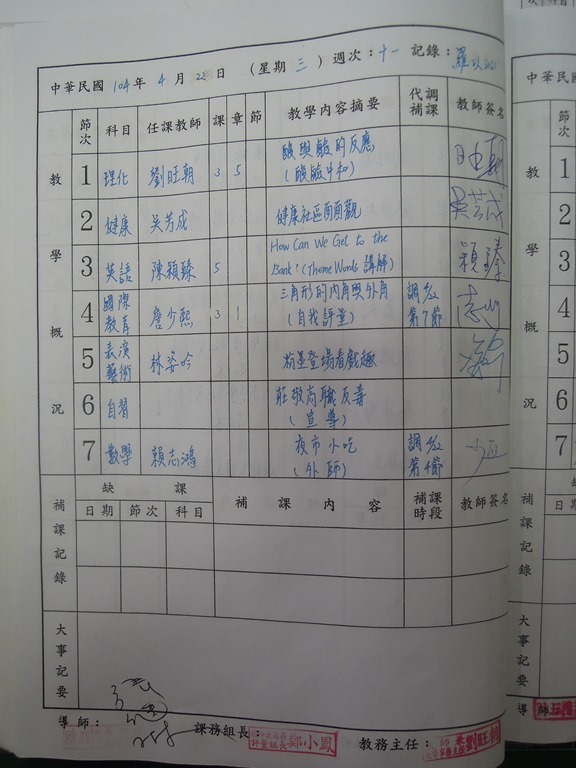 中華民國 104 年 4 月 22 日 (星期 三) 週次：十一 記錄：羅
教學概況
節次 科目 任課教師 課 章 節 教學內容摘要 代調補課 教師簽名
1 理化 劉旺朝 3 5 酸與鹼的反應 (酸鹼中和)
2 健康 吳芳成 健康社區面面觀 吳芳成
3 英語 陳穎臻 5 How Can We Get to the Bank? (Theme Words 講解) 穎臻
4 國際教育 詹少熙 3 1 三角形的內角與外角 (自我評量) 調至第7節
5 表演藝術 林姿吟 粉墨登場看戲趣
6 自習 莊敬高職反毒 (宣導)
7 數學 賴志鴻 夜市小吃 (外師) 調至第4節
補課記錄
缺課 補課內容 補課時段 教師簽名
日期 節次 科目
大事記要
導師： 課務組長： 鄭小鳳 教務主任： 劉旺朝
中華民國
節次
教學概況
1
2
3
4
5
6
7
補課記錄
日
大事記要
導師